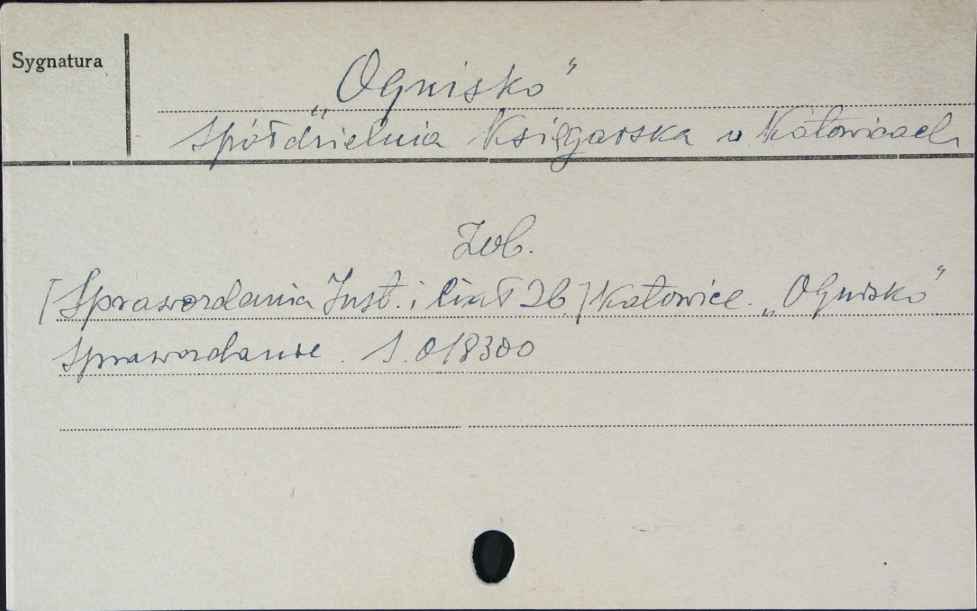 Sygnatura
„Ognisko"
Spółdzielnia Księgarska w Katowicach
Zob.
[Sprawozdania Inst. i Ciał Zb.] Katowice. „Ognisko"
Sprawozdanie. S. 018300